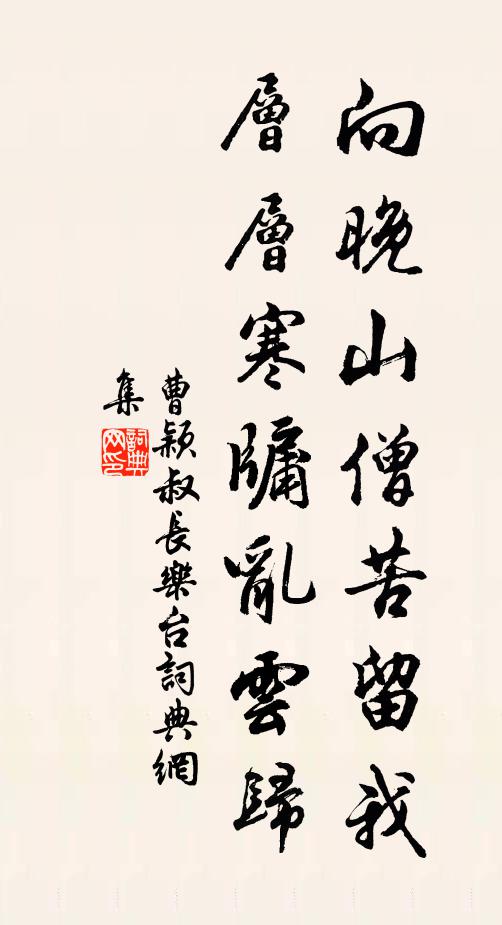 向晚山僧苦留我
層層寒牖亂雲歸
曹穎叔長樂台詞典網
集
詞典
网印